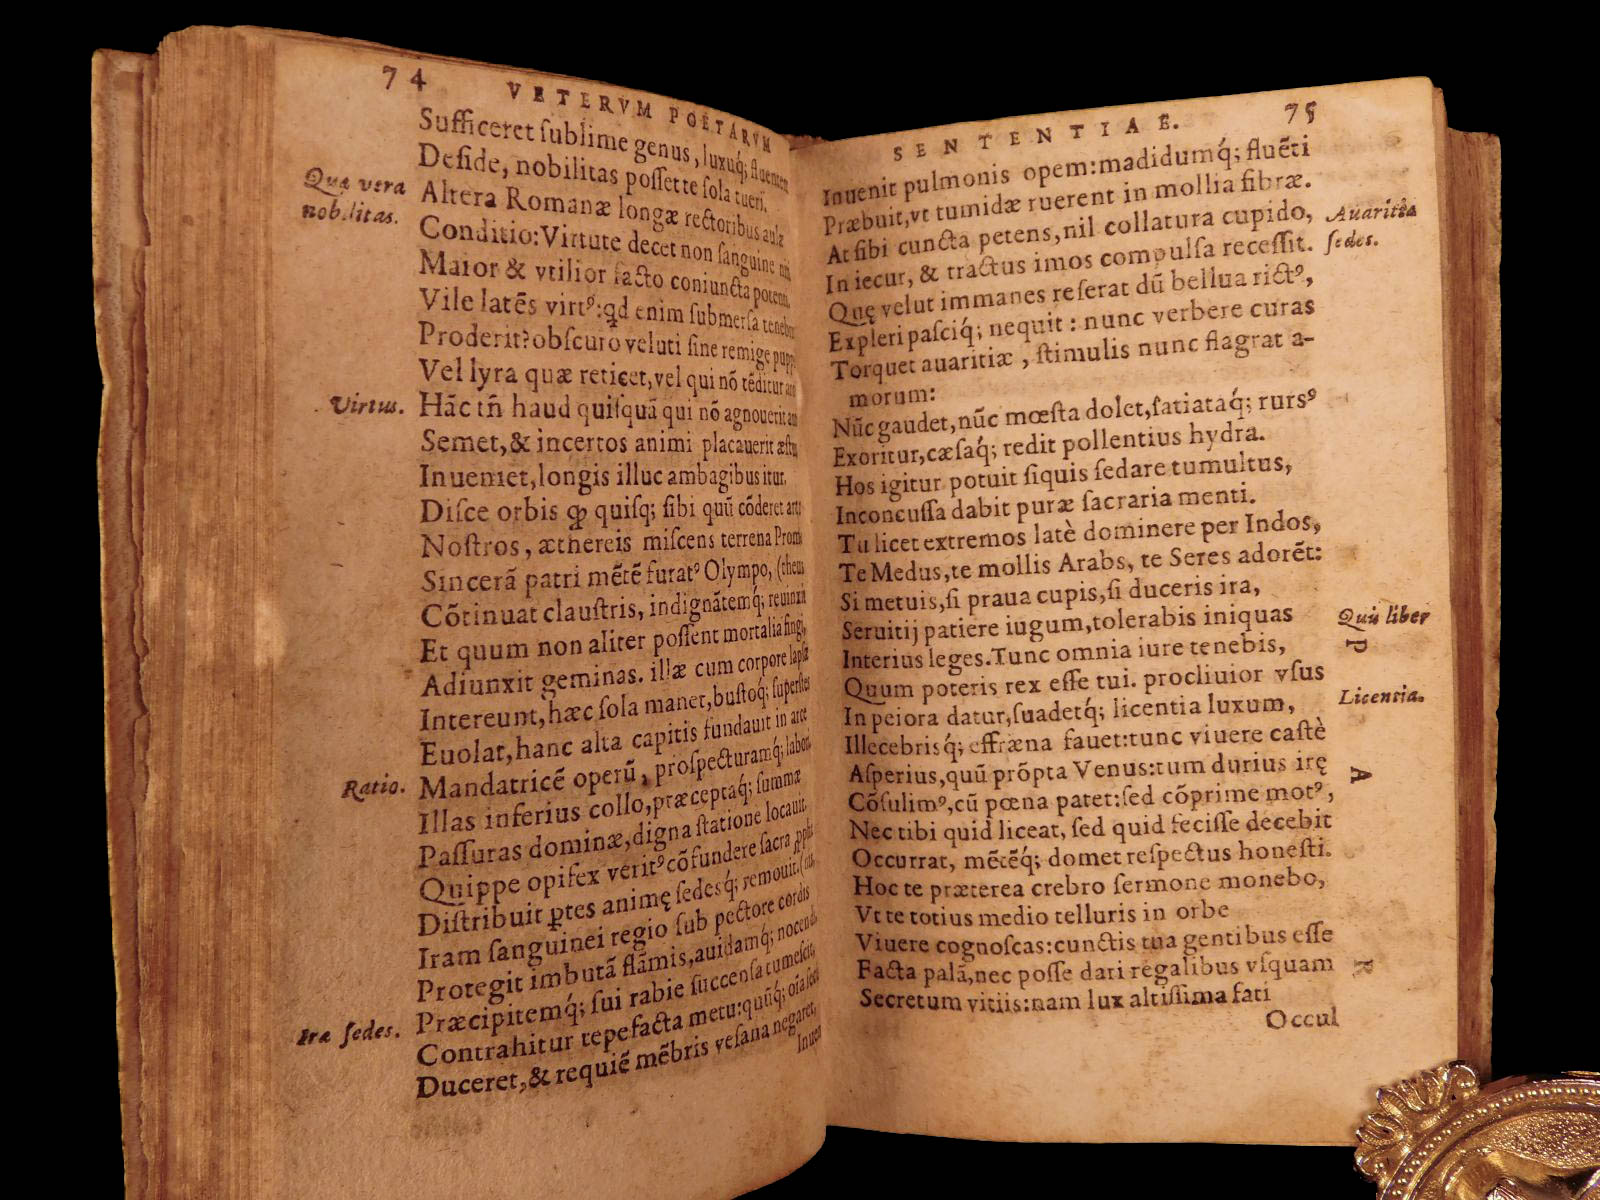 74
VETERVM POETARVM
Sufficeret ſublime genus, luxuq́; fluentem
Deſide, nobilitas poſſet te ſola tueri.
Quę vera
nobilitas.
Altera Romanæ longæ rectoribus aulæ
Conditio: Virtute decet non ſanguine niti,
Maior & vtilior facto coniuncta potenti,
Vile latẽs virtꝰ: qd enim ſubmerſa tenebris
Proderit? obſcuro veluti ſine remige puppis
Vel lyra quæ reticet, vel qui nõ tẽditur
Virtus.
Hãc tñ haud quiſquã qui nõ agnouerit
Semet, & incertos animi placauerit æſtus
Inueniet, longis illuc ambagibus itur.
Diſce orbis quiſq; ſibi quũ cõderet artus
Noſtros, æthereis miſcens terrena Prome
Sincerã patri mẽtẽ furatꝰ Olympo, (theus
Cõtinuat clauſtris, indignãtemq́; reuinxit
Et quum non aliter poſſent mortalia fingi,
Adiunxit geminas. illæ cum corpore lapſæ
Intereunt, hæc ſola manet, buſtoq́; ſuperſtes
Euolat, hanc alta capitis fundauit in arce
Ratio.
Mandatricẽ operũ, proſpecturamq́; labori.
Illas inferius collo, præceptaq́; ſummæ
Paſſuras dominæ, digna ſtatione locauit.
Quippe opifex veritꝰ cõfundere ſacra
Diſtribuit ꝑtes animę ſedesq́; remouit.
Iram ſanguinei regio ſub pectore cordis
Protegit imbutã flãmis, auidamq́; nocendi
Iræ ſedes.
Præcipitemq́; ſui rabie ſuccenſa tumeſcit,
Contrahitur tepefacta metu: quũq́; oĩa ſecũ
Duceret, & requiẽ mẽbris veſana negaret,
Inuen
SENTENTIAE.
75
Inuenit pulmonis opem: madidumq́; fluẽti
Præbuit, vt tumidæ ruerent in mollia fibræ.
Auaritiæ
ſedes.
At ſibi cuncta petens, nil collatura cupido,
In iecur, & tractus imos compulſa receſſit.
Quę velut immanes reſerat dũ bellua rictꝰ,
Expleri paſciq́; nequit: nunc verbere curas
Torquet auaritiæ, ſtimulis nunc flagrat a-
morum:
Nũc gaudet, nũc mœſta dolet, ſatiataq́; rursꝰ
Exoritur, cæſaq́; redit pollentius hydra.
Hos igitur potuit ſiquis ſedare tumultus,
Inconcuſſa dabit puræ ſacraria menti.
Tu licet extremos latè dominere per Indos,
Te Medus, te mollis Arabs, te Seres adorẽt:
Si metuis, ſi praua cupis, ſi duceris ira,
Seruitij patiere iugum, tolerabis iniquas
Quis liber
Interius leges. Tunc omnia iure tenebis,
Quum poteris rex eſſe tui. procliuior vſus
Licentia.
In peiora datur, ſuadetq́; licentia luxum,
Illecebrisq́; effræna fauet: tunc viuere caſtè
Aſperius, quũ prõpta Venus: tum durius irę
Cõſulimꝰ, cũ pœna patet: ſed cõprime motꝰ,
Nec tibi quid liceat, ſed quid feciſſe decebit
Occurrat, mẽtẽq́; domet reſpectus honeſti.
Hoc te præterea crebro ſermone monebo,
Vt te totius medio telluris in orbe
Viuere cognoſcas: cunctis tua gentibus eſſe
Facta palã, nec poſſe dari regalibus vſquam
Secretum vitiis: nam lux altiſſima fati
Occul
P
A
R